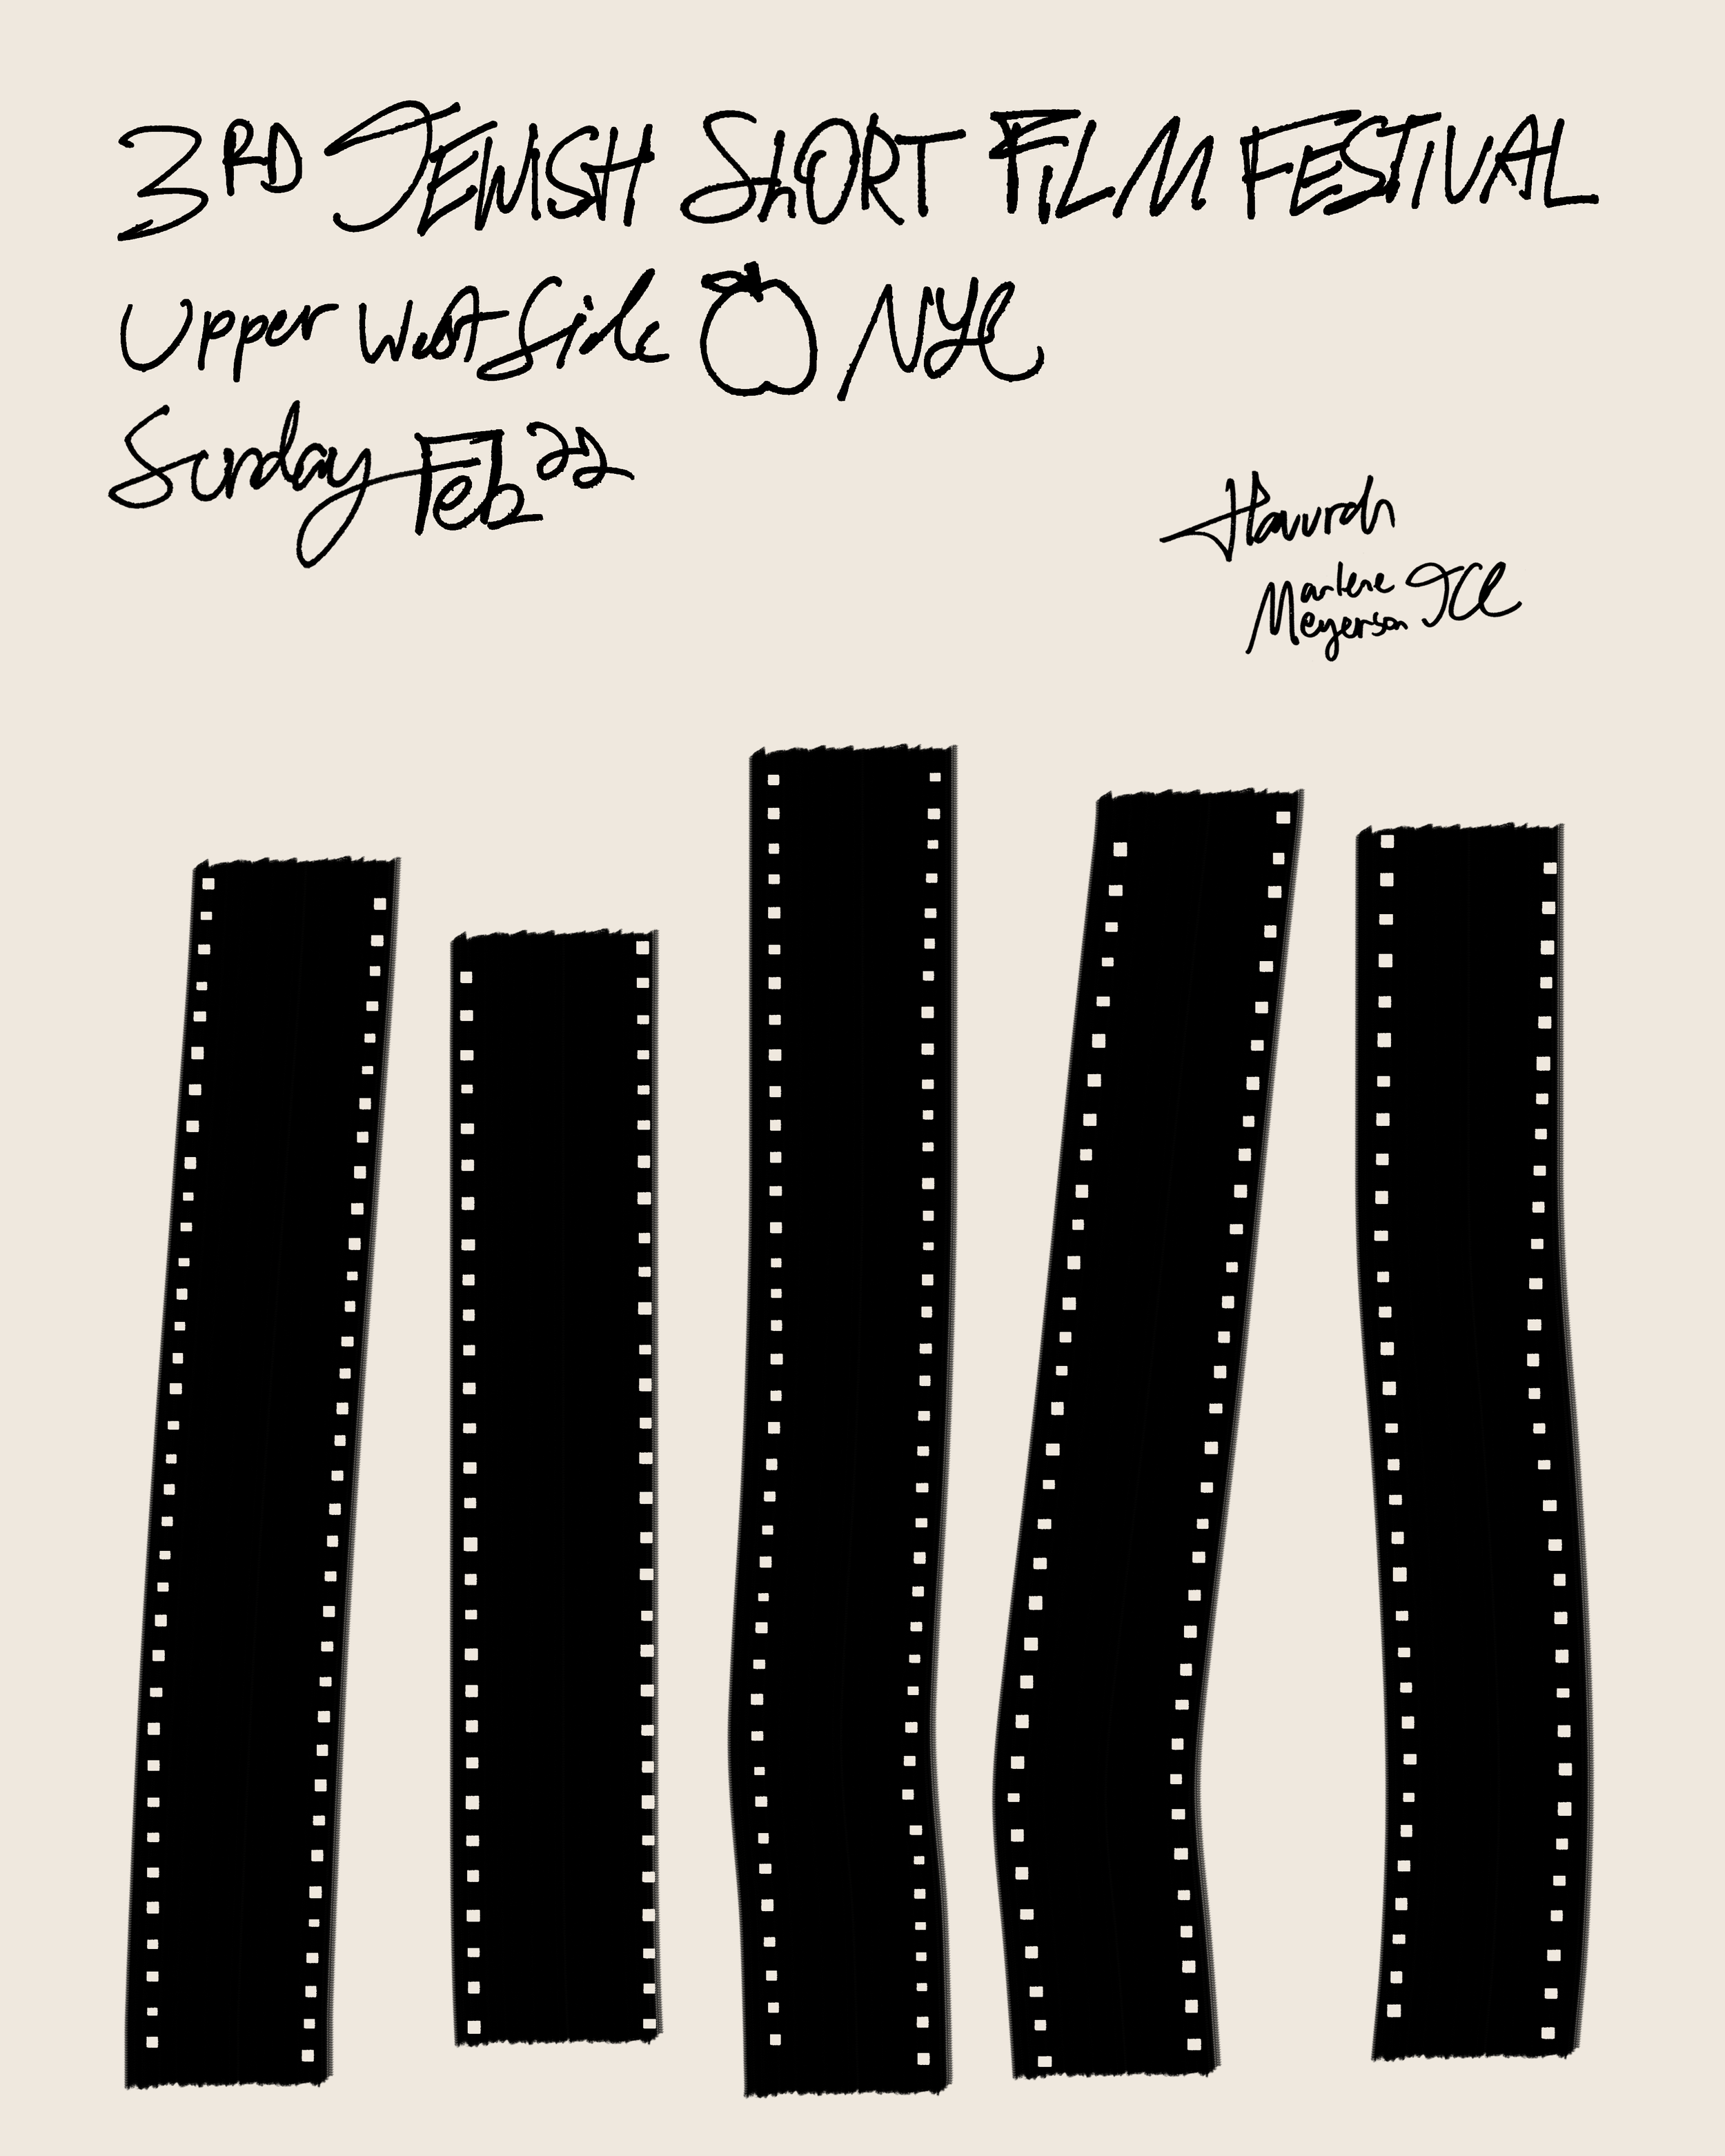 3RD JEWISH ShORT FiLM FESTIVAL
Upper West Side NYC
Sunday Feb 22
Havurah
Marlene
Meyerson JCC